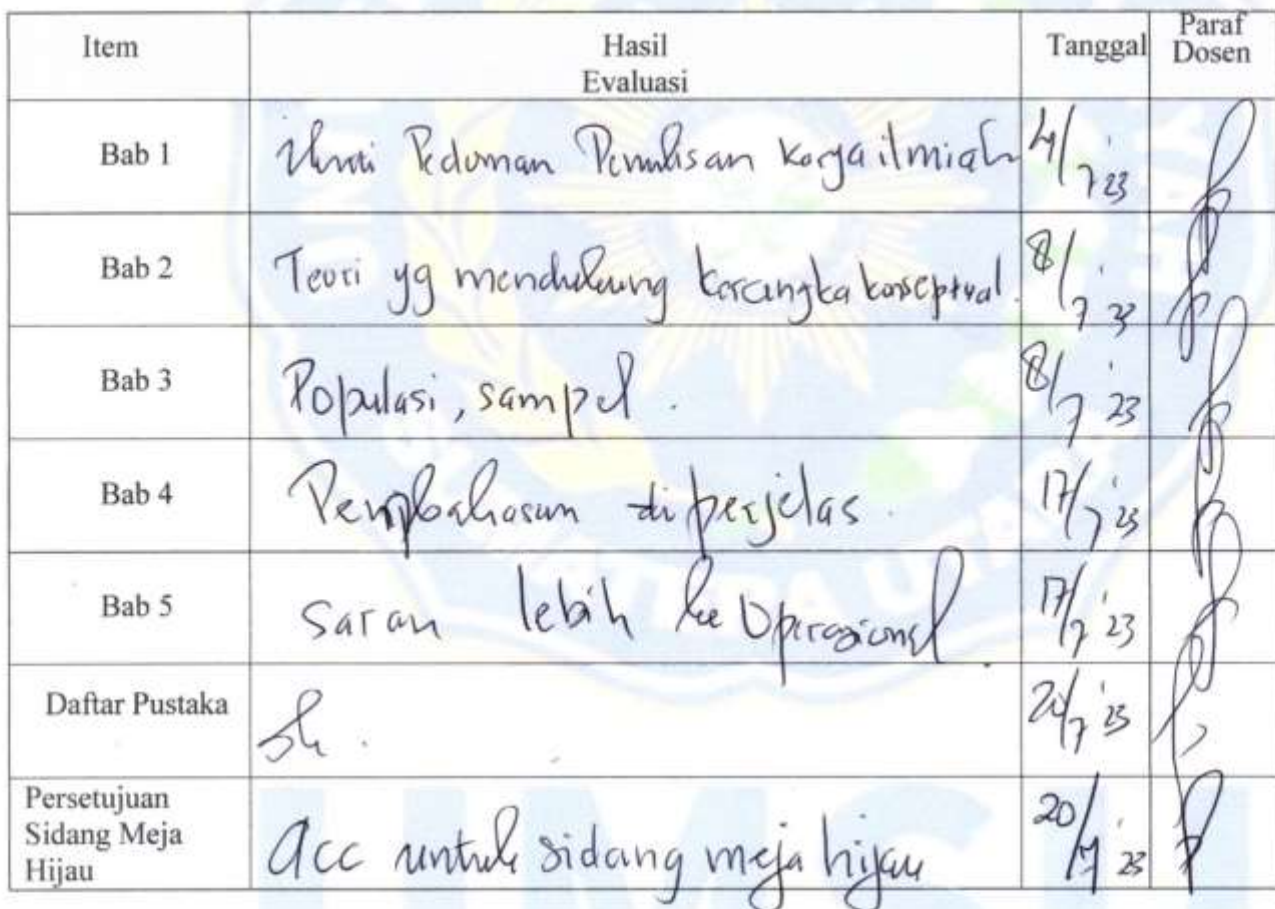 Item Hasil Evaluasi Tanggal Paraf Dosen
Bab 1 Pedoman Penulisan Karya ilmiah 4/7 '23
Bab 2 Teori yg mendukung kerangka konseptual. 8/7 '23
Bab 3 Populasi, sampel. 8/7 '23
Bab 4 Pembahasan diperjelas. 17/7 '23
Bab 5 saran lebih ke Operasional. 17/7 '23
Daftar Pustaka 20/7 '23
Persetujuan
Sidang Meja
Hijau
acc untuk sidang meja hijau 20/7 '23
UMSU